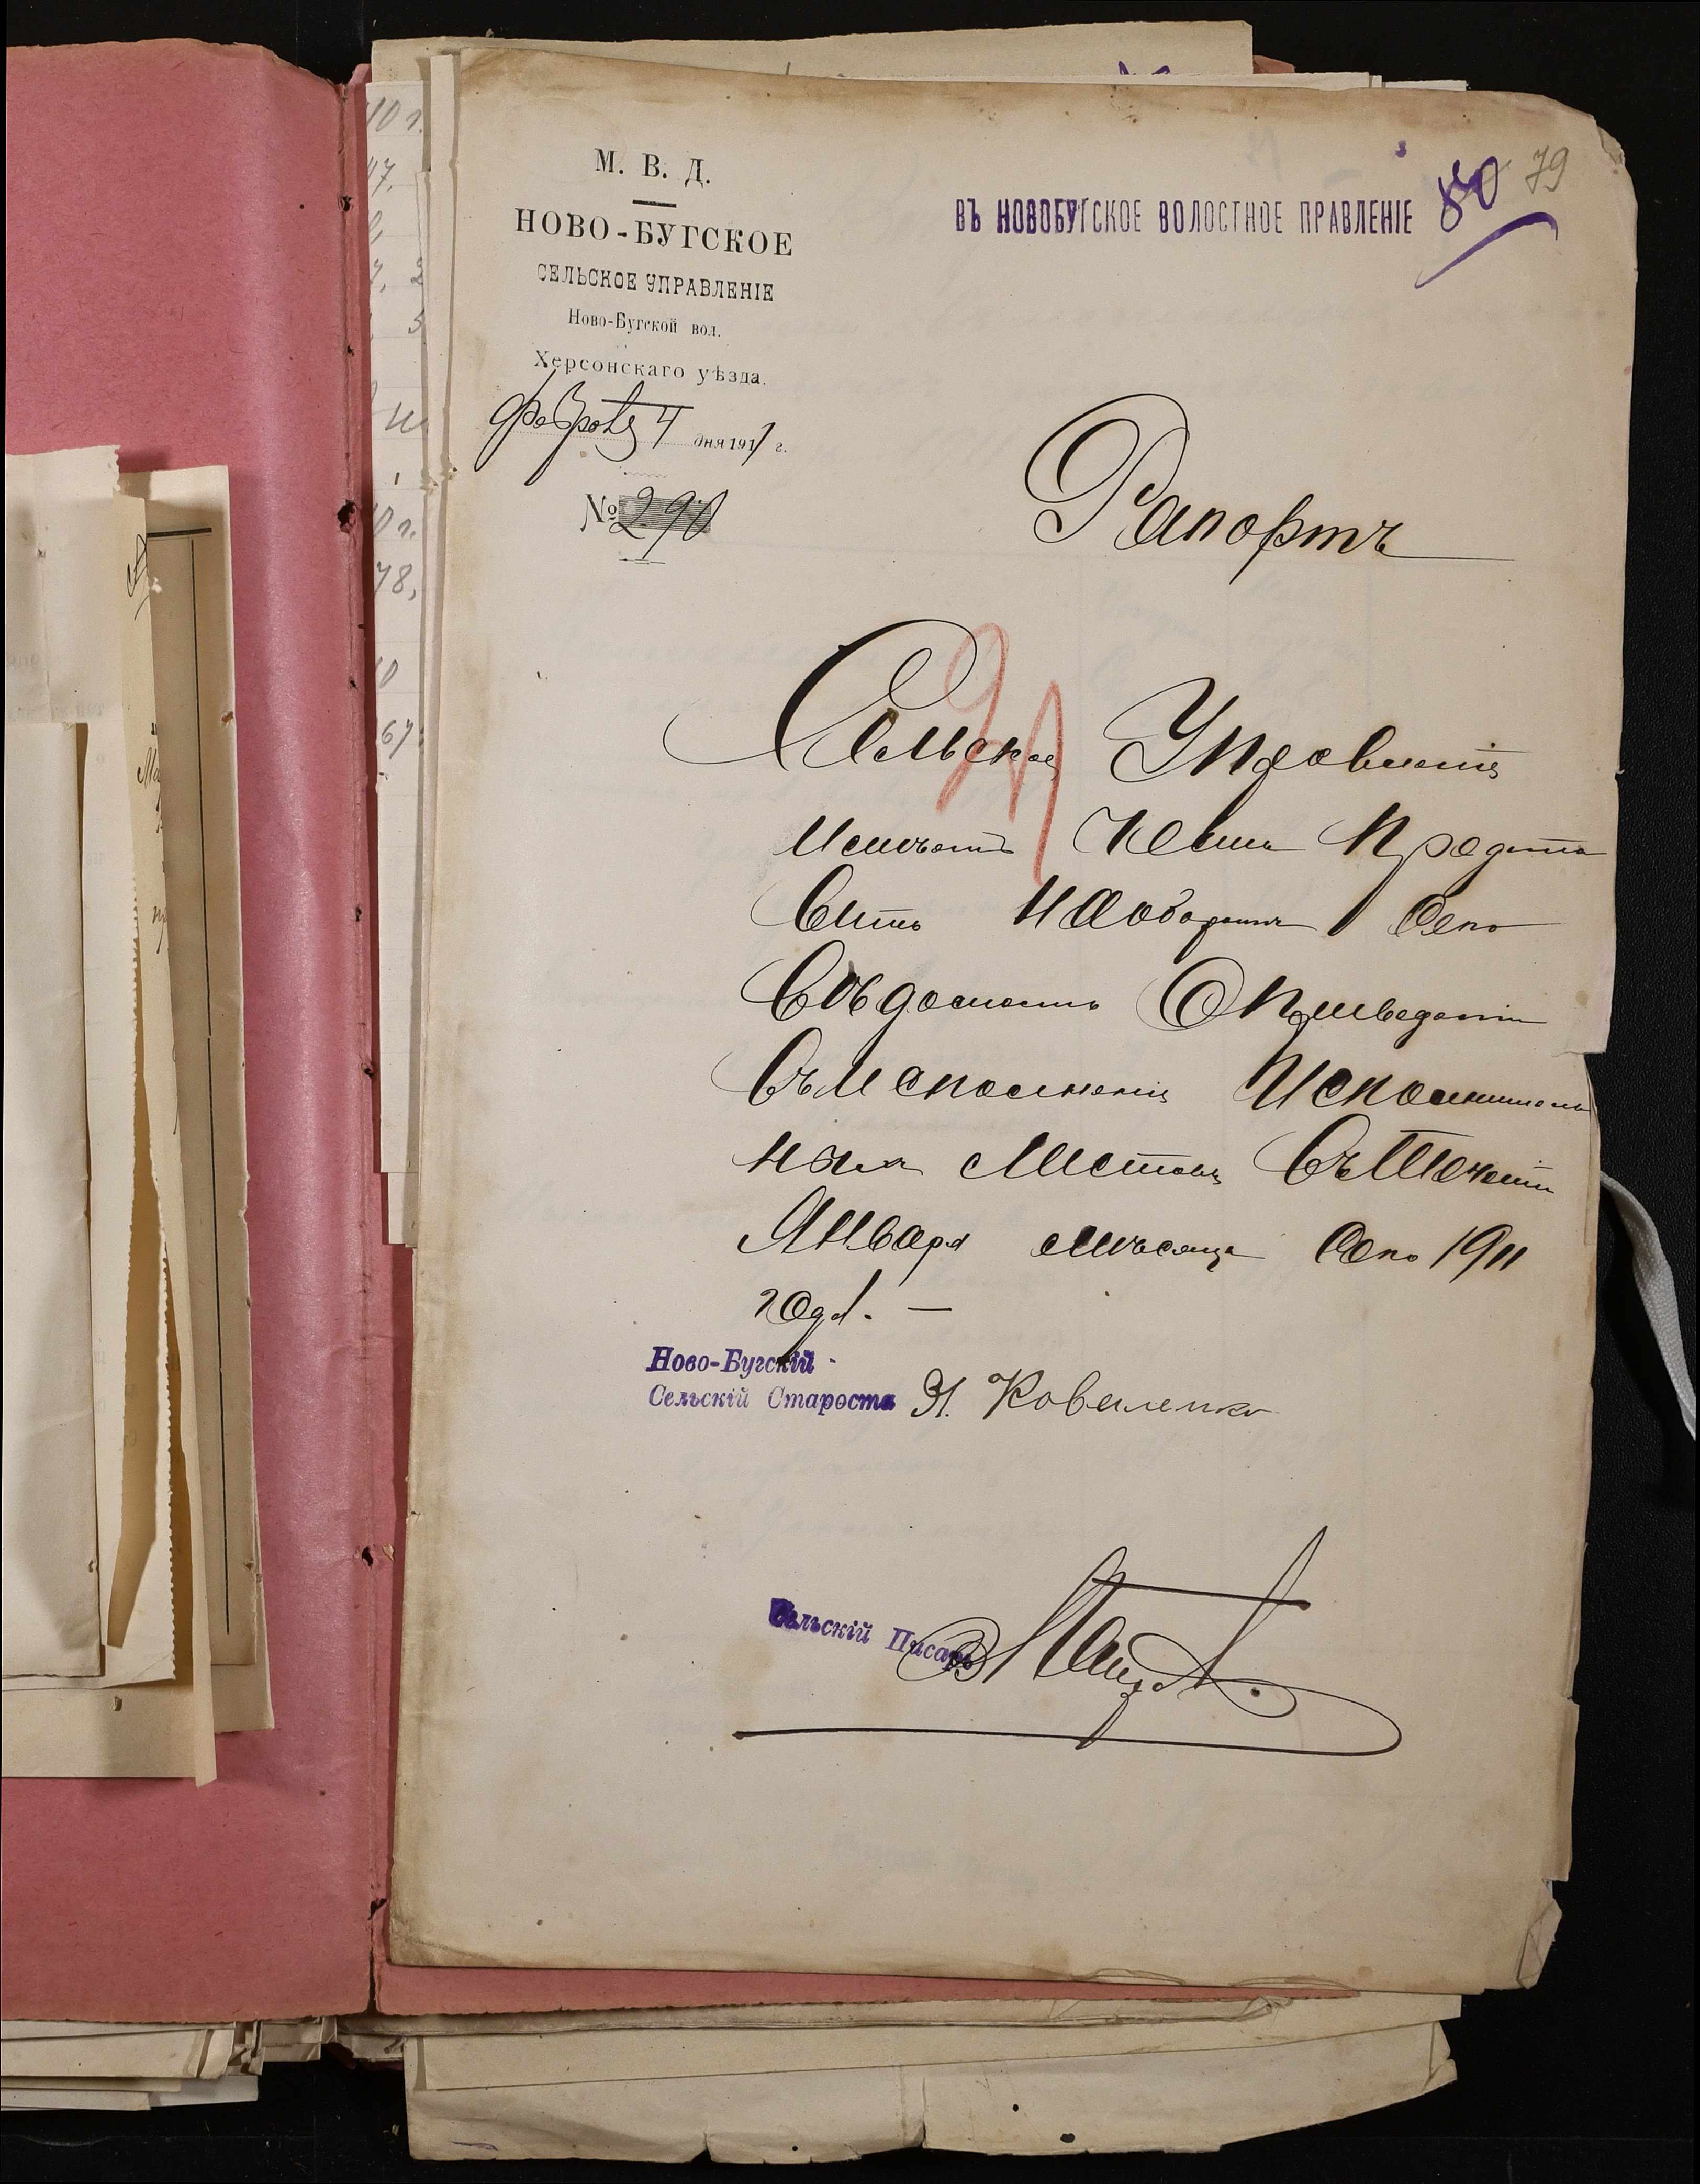 М. В. Д.
НОВО-БУГСКОЕ
СЕЛЬСКОЕ УПРАВЛЕНІЕ
Ново-Бугской вол.
Херсонскаго уѣзда.
Февраля 4 дня 1911 г.
№ 290
ВЪ НОВОБУГСКОЕ ВОЛОСТНОЕ ПРАВЛЕНІЕ
80 79
Рапортъ
Сельское Управленіе
имѣетъ честь предста
вить на оборотѣ сего
вѣдомость о приведеніи
въ исполненіе исполнитель
ныхъ листовъ въ теченіи
Января мѣсяца сего 1911
года. —
Ново-Бугскій
Сельскій Староста И. Коваленко
Сельскій Писарь